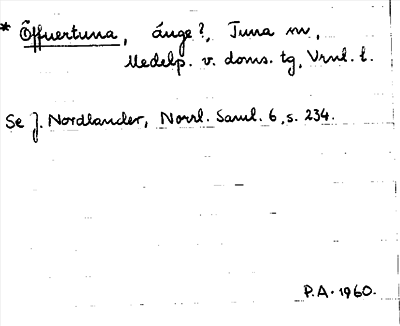 * Öffnertuna, änge?, Tuna sn,
Medelp. v. doms. tg, Vrnl. l.
Se J. Nordlander, Norrl. Saml. 6, s. 234.
P.A. 1960.